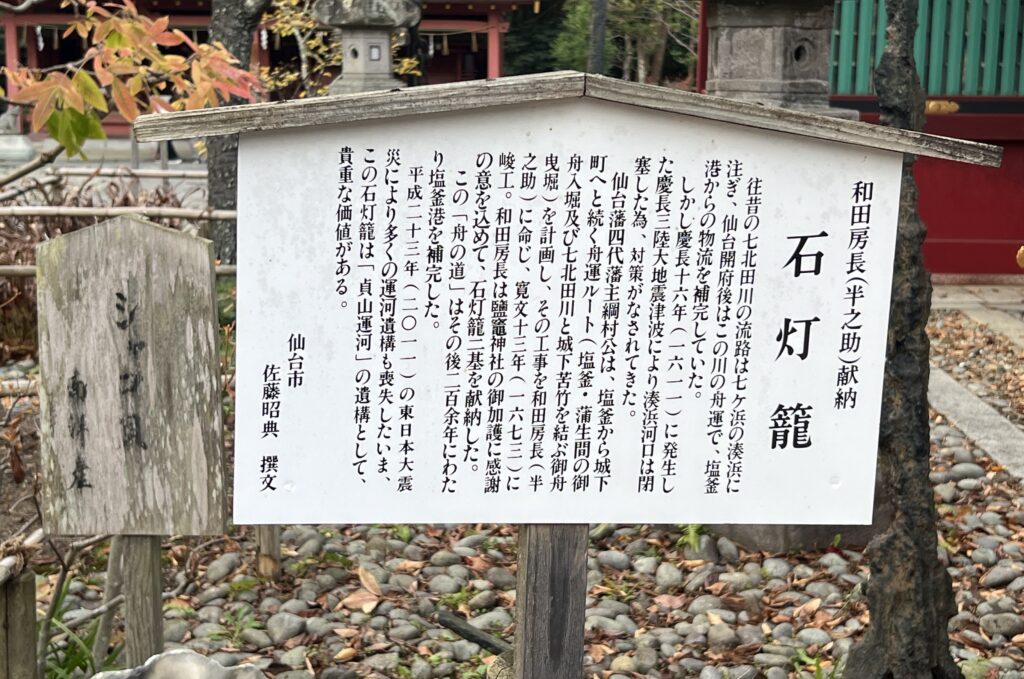 和田房長(半之助)献納
石灯籠
往昔の七北田川の流路は七ケ浜の湊浜に
注ぎ、仙台開府後はこの川の舟運で、塩釜
港からの物流を補完していた。
しかし慶長十六年(一六一一)に発生し
た慶長三陸大地震津波により湊浜河口は閉
塞した為、対策がなされてきた。
仙台藩四代藩主綱村公は、塩釜から城下
町へと続く舟運ルート(塩釜・蒲生間の御
舟入堀及び七北田川と城下苦竹を結ぶ御舟
曳堀)を計画し、その工事を和田房長(半
之助)に命じ、寛文十三年(一六七三)に
竣工。和田房長は鹽竈神社の御加護に感謝
の意を込めて、石灯籠二基を献納した。
この「舟の道」はその後二百余年にわた
り塩釜港を補完した。
平成二十三年(二〇一一)の東日本大震
災により多くの運河遺構も喪失したいま、
この石灯籠は「貞山運河」の遺構として、
貴重な価値がある。
仙台市
佐藤昭典 撰文